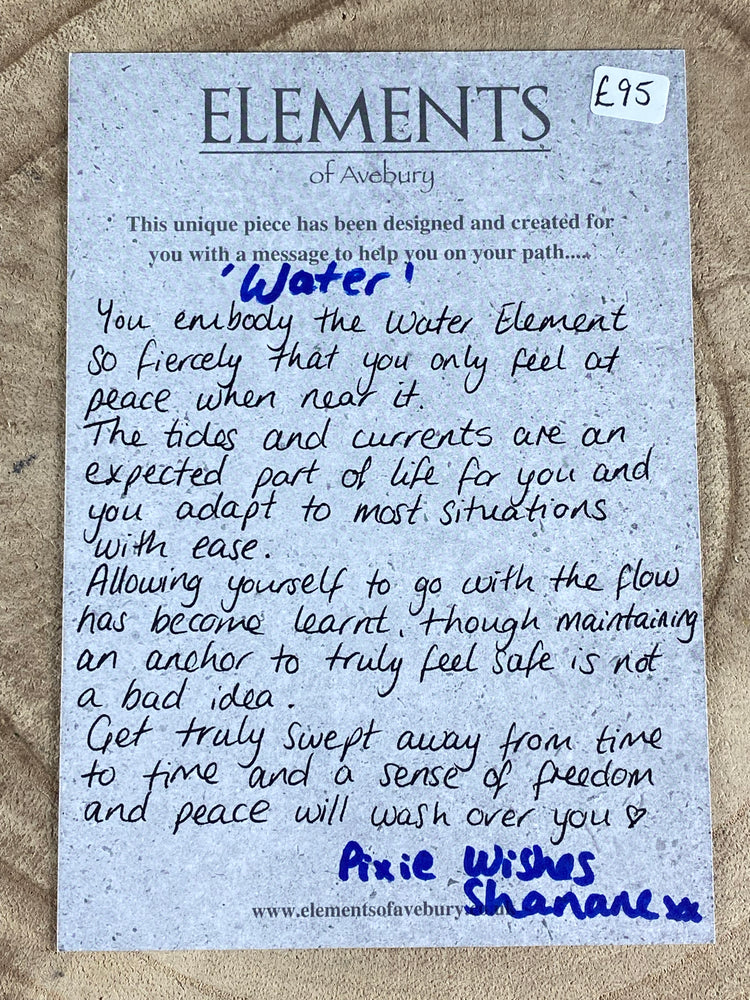 ELEMENTS
£95
of Avebury
This unique piece has been designed and created for
you with a message to help you on your path....
'Water'
You embody the Water Element
so fiercely that you only feel at
peace when near it.
The tides and currents are an
expected part of life for you and
you adapt to most situations
with ease.
Allowing yourself to go with the flow
has become learnt, though maintaining
an anchor to truly feel safe is not
a bad idea.
Get truly swept away from time
to time and a sense of freedom
and peace will wash over you ♡
Pixie Wishes
Shanane xx
www.elementsofavebury